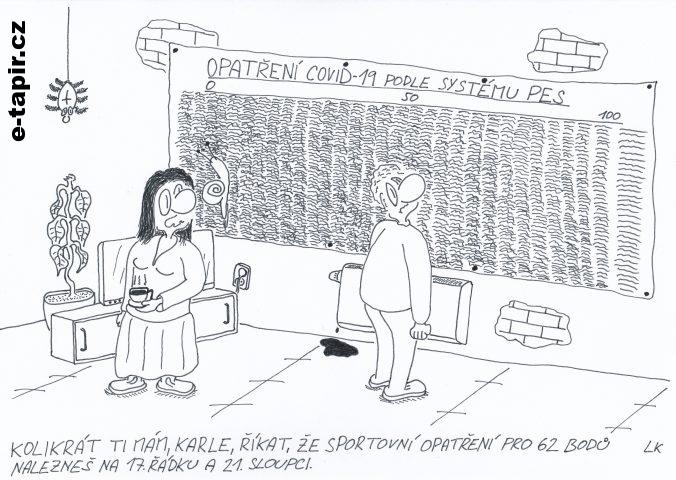 e-tapir.cz
OPATŘENÍ COVID-19 PODLE SYSTÉMU PES
0 50 100
KOLIKRÁT TI MÁM, KARLE, ŘÍKAT, ŽE SPORTOVNÍ OPATŘENÍ PRO 62 BODŮ
NALEZNEŠ NA 17. ŘÁDKU A 21. SLOUPCI.
LK